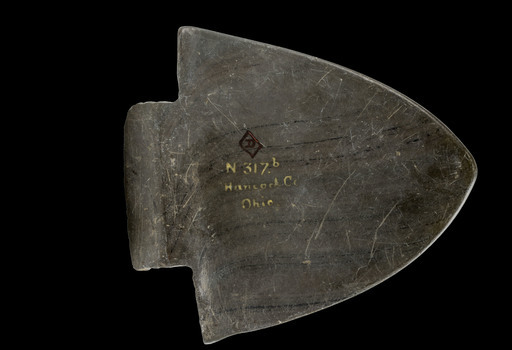 D
N 317.b
Hancock Co
Ohio